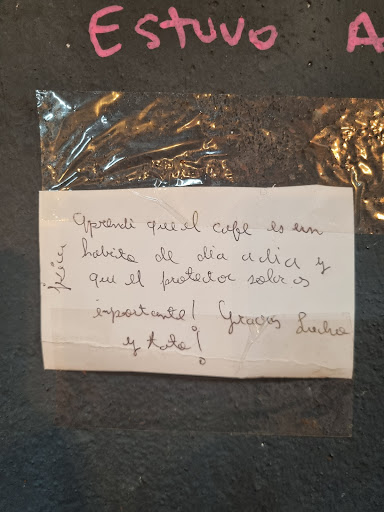 Estuvo A
Aprendi que el cafe es un
habito de dia a dia y
que el protector solar es
importante! Gracias Lucho
y tato!